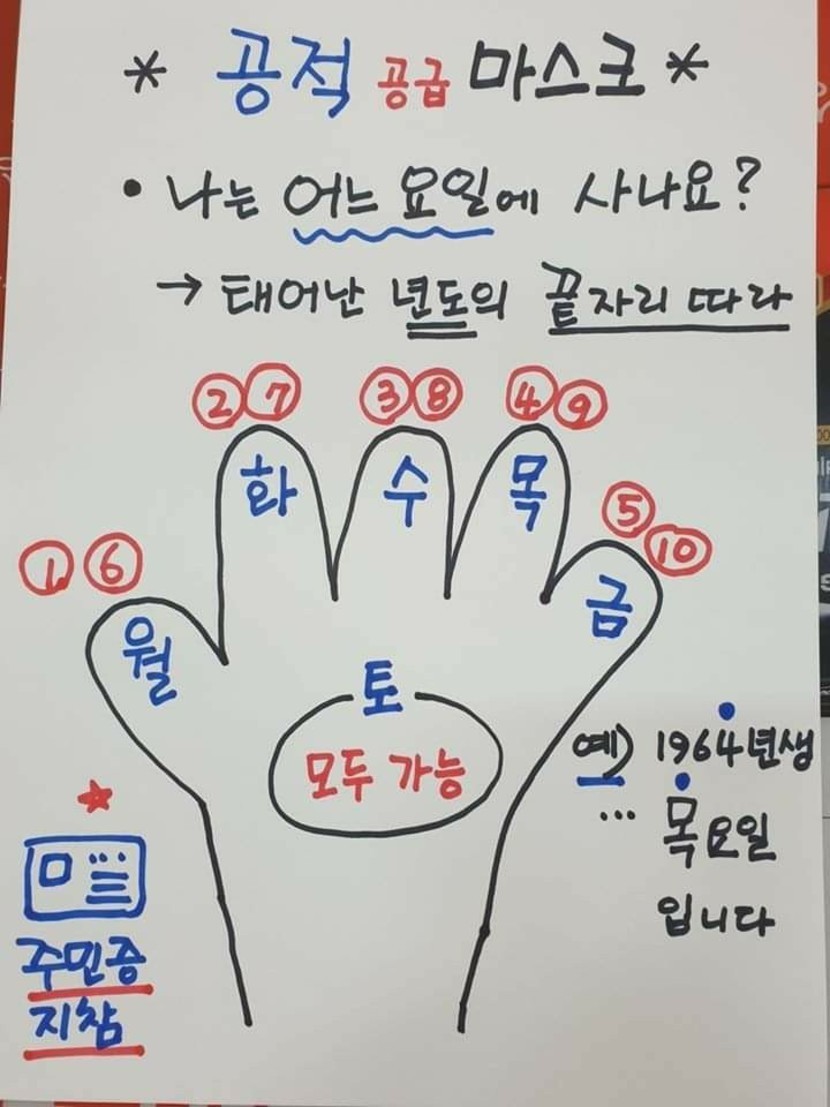 * 공적 공급 마스크 *
• 나는 어느 요일에 사나요?
→ 태어난 년도의 끝자리 따라
② ⑦ ③ ⑧ ④ ⑨
화 수 목
⑤ ⑩
① ⑥
금
월
토
모두 가능
예) 1964년생
... 목요일
입니다
주민증
지참